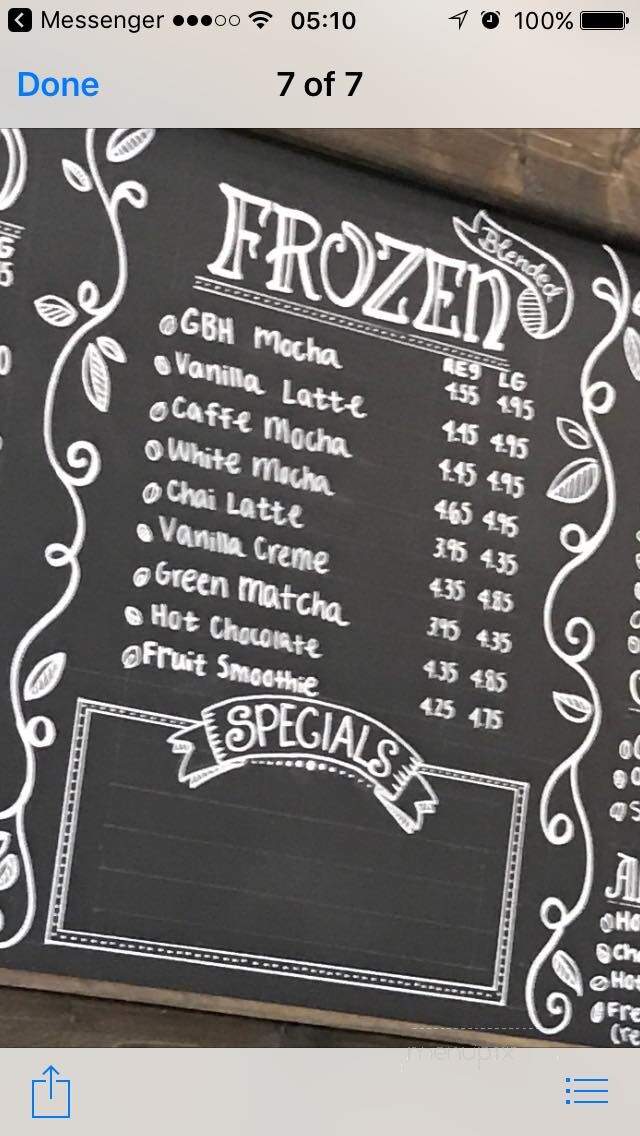 Messenger 05:10 100%
Done 7 of 7
FROZEN Blended
REG LG
GBH Mocha 4.55 4.95
Vanilla Latte 4.45 4.95
Caffe Mocha 4.45 4.95
White Mocha 4.65 4.95
Chai Latte 3.95 4.35
Vanilla Creme 4.35 4.85
Green Matcha 3.95 4.35
Hot Chocolate 4.35 4.85
Fruit Smoothie 4.25 4.75
SPECIALS
menupix